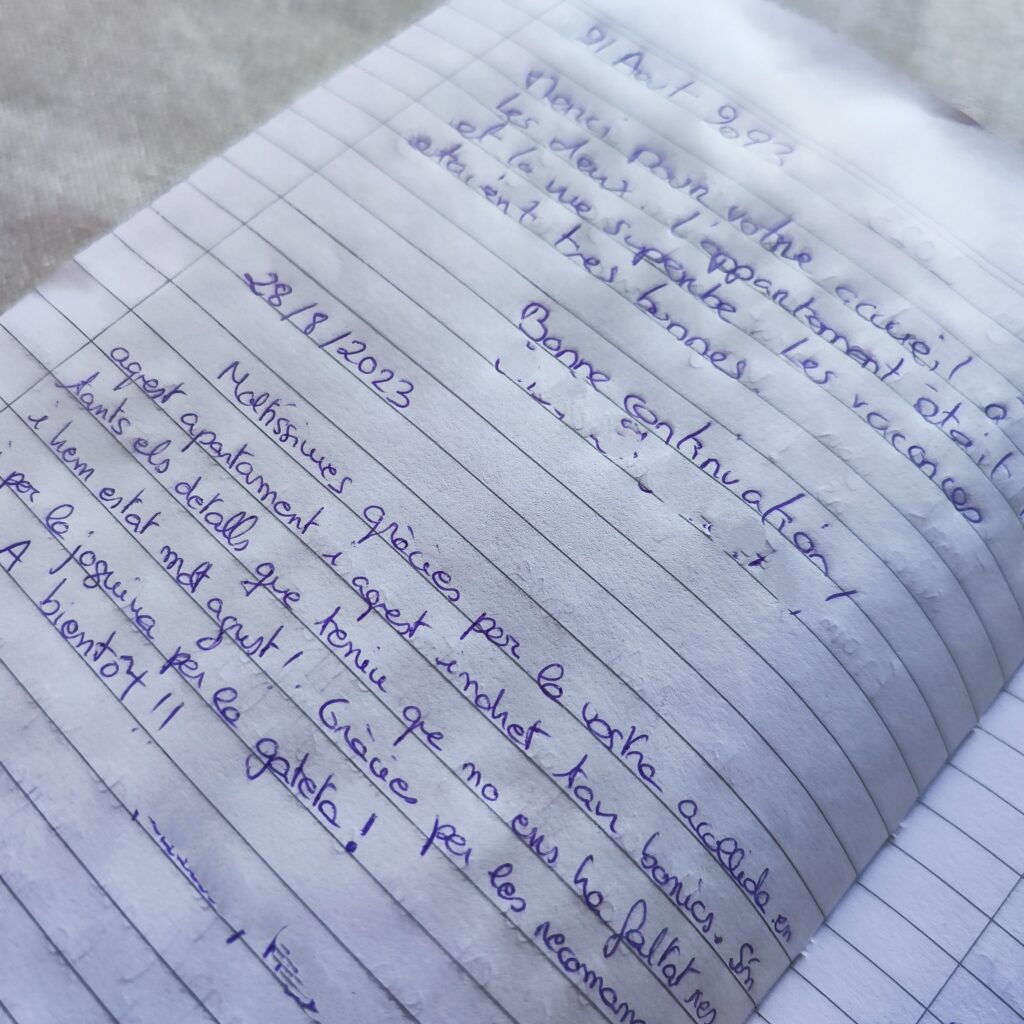 Août 2023
Merci pour votre accueil à
les deux. l'appartement était
et la vue superbe. Les vacances
etaient très bonnes.
Bonne continuatión!
28/8/2023
Moltíssimes gràcies per la vostra acollida en
aqest apartament i aqest indret tan bonics. Són
tants els detalls que teniu que no ens ha faltat res
i hem estat molt agust! Gràcies per les recoman
i per la joguina per la gateta!
A bientôt!!